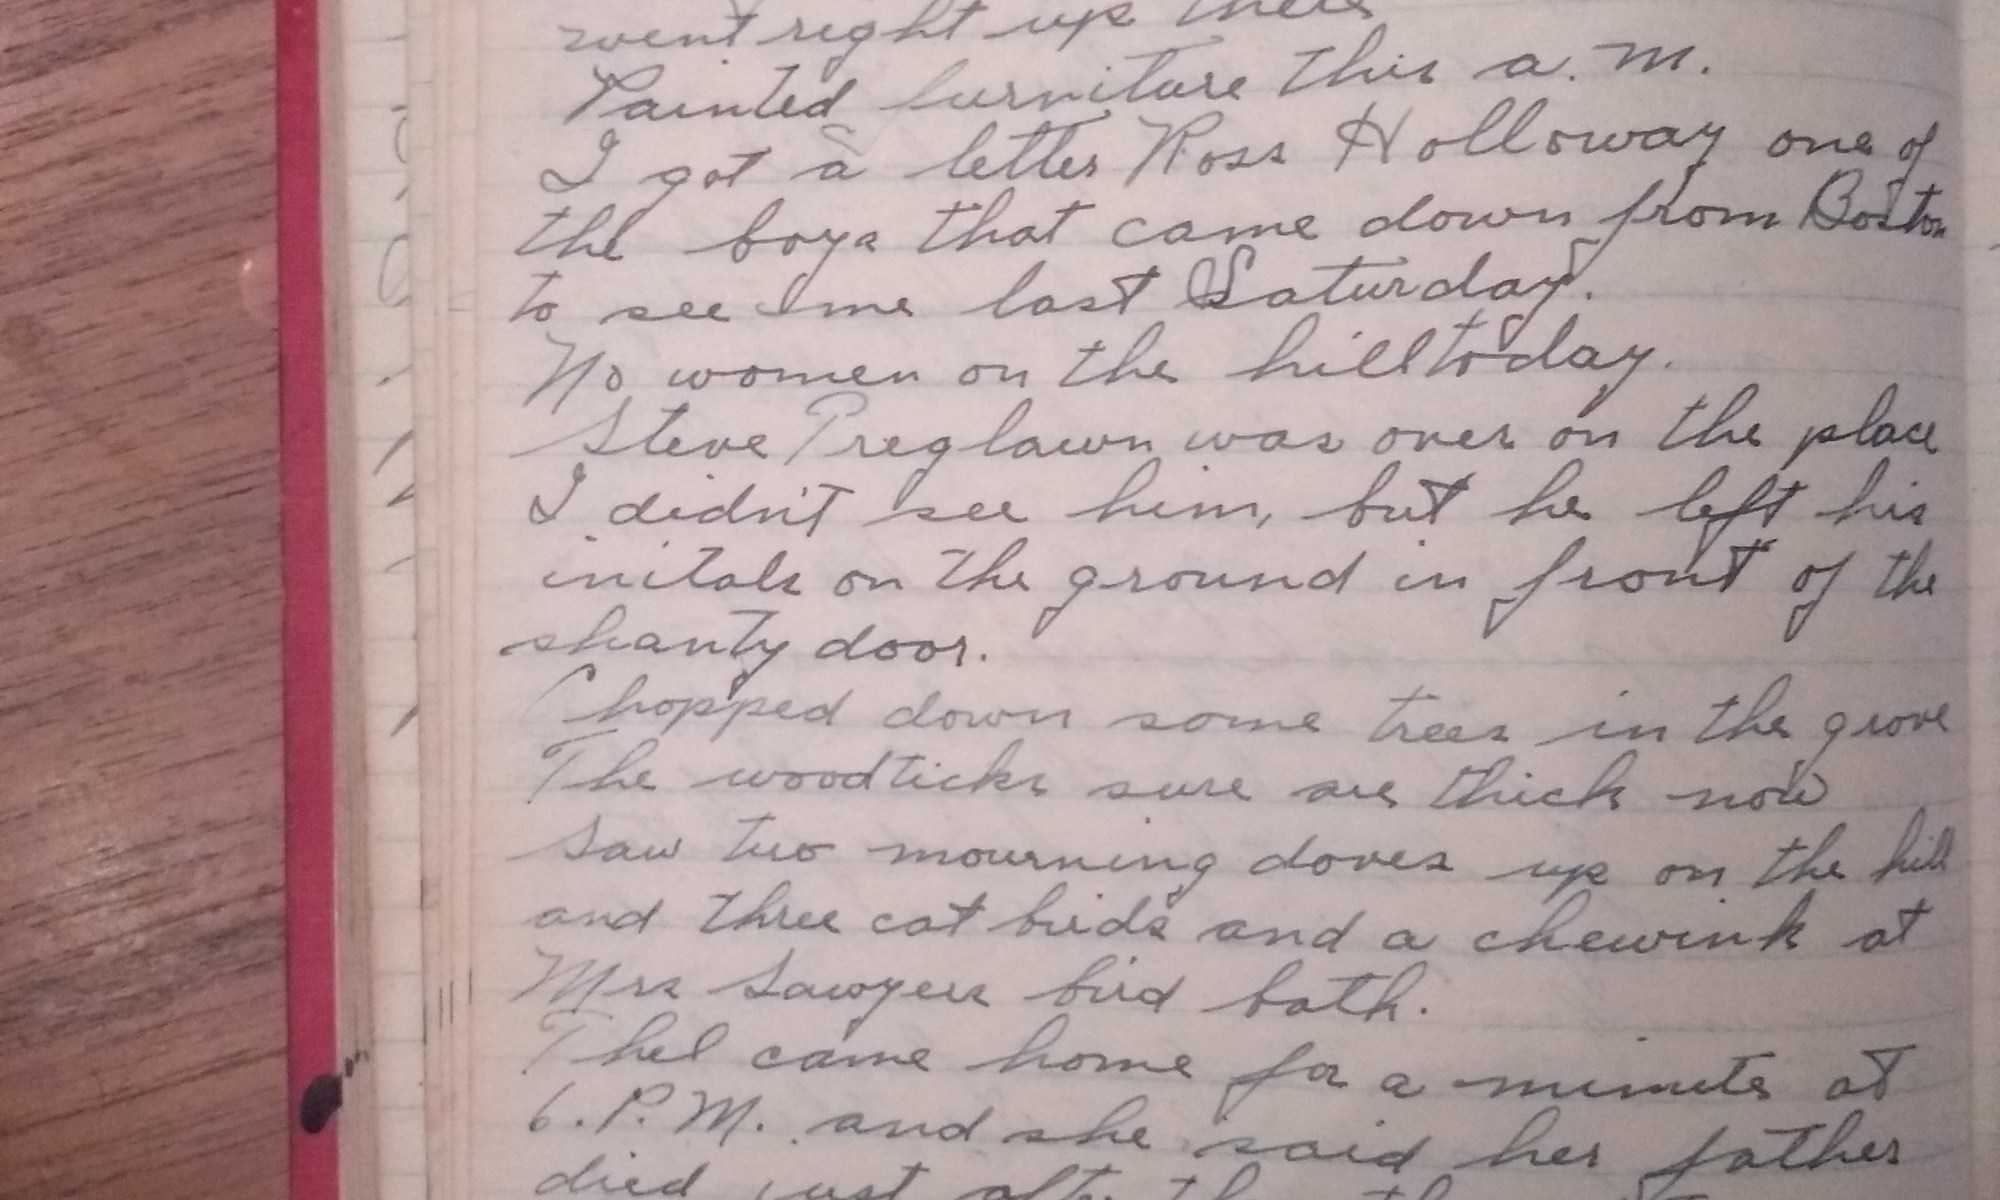 went right up there
Painted furniture this a.m.
I got a letter Ross Holloway one of
the boys that came down from Boston
to see me last Saturday.
No women on the hill today.
Steve Preglawn was over on the place
I didn't see him, but he left his
initals on the ground in front of the
shanty door.
Chopped down some trees in the grove
The woodticks sure are thick now
Saw two mourning doves up on the hill
and three cat birds and a chewink at
Mrs Sawyers bird bath.
Thel came home for a minute at
6. P.M. and she said her father
died just after